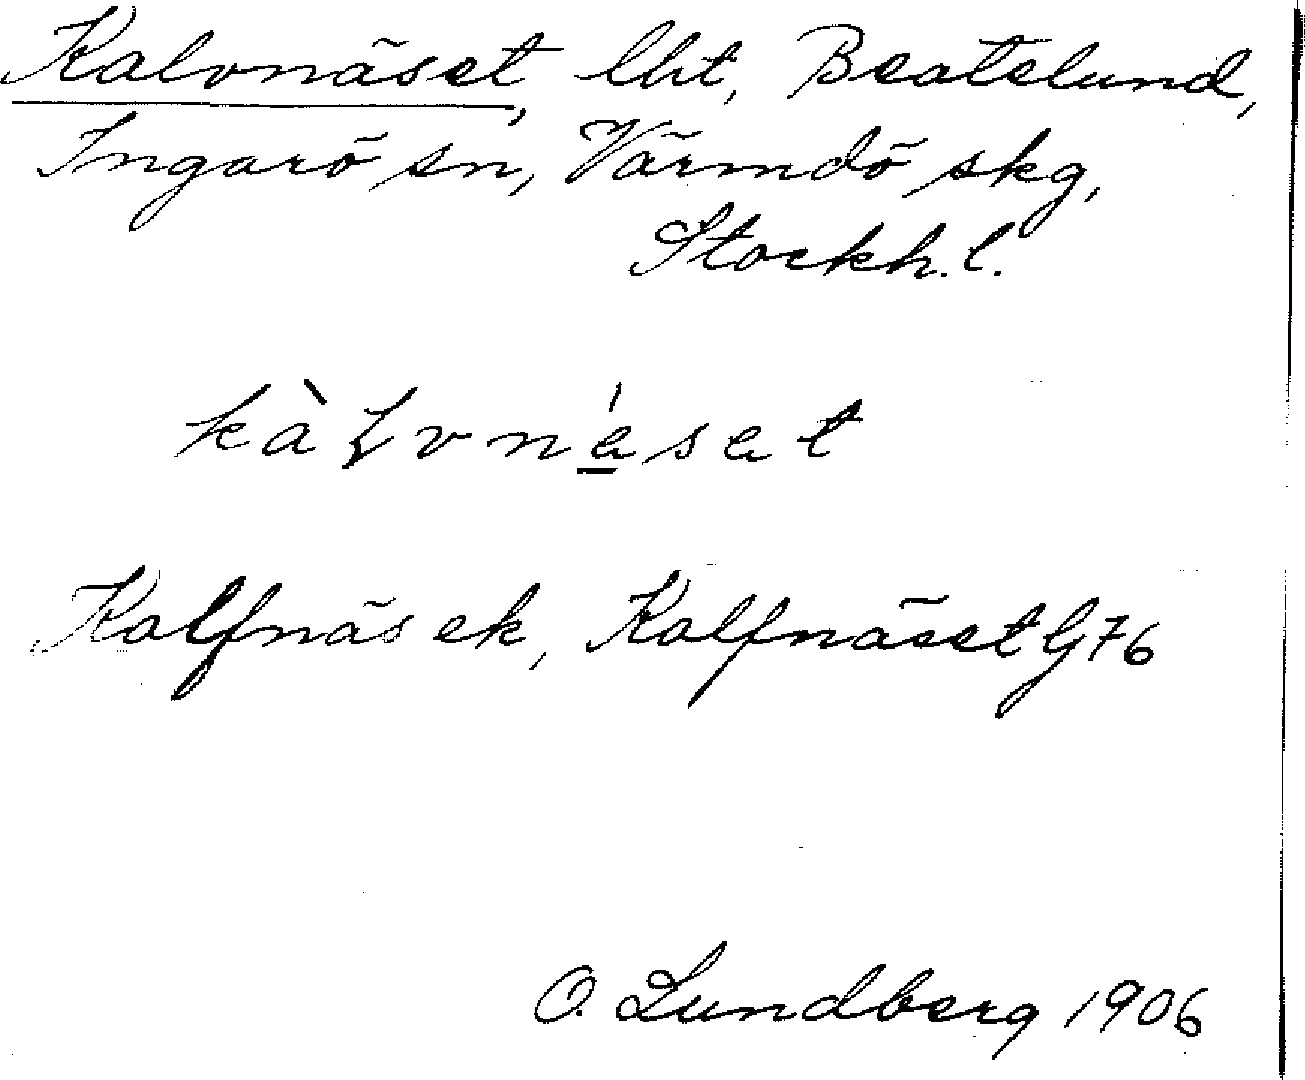 Kalvnäset, lht, Beatelund,
Ingarö sn, Värmdö skg,
Stockh. l.
kàlvnésat
Kalfnäs ek, Kalfnäset G 76
O. Lundberg 1906